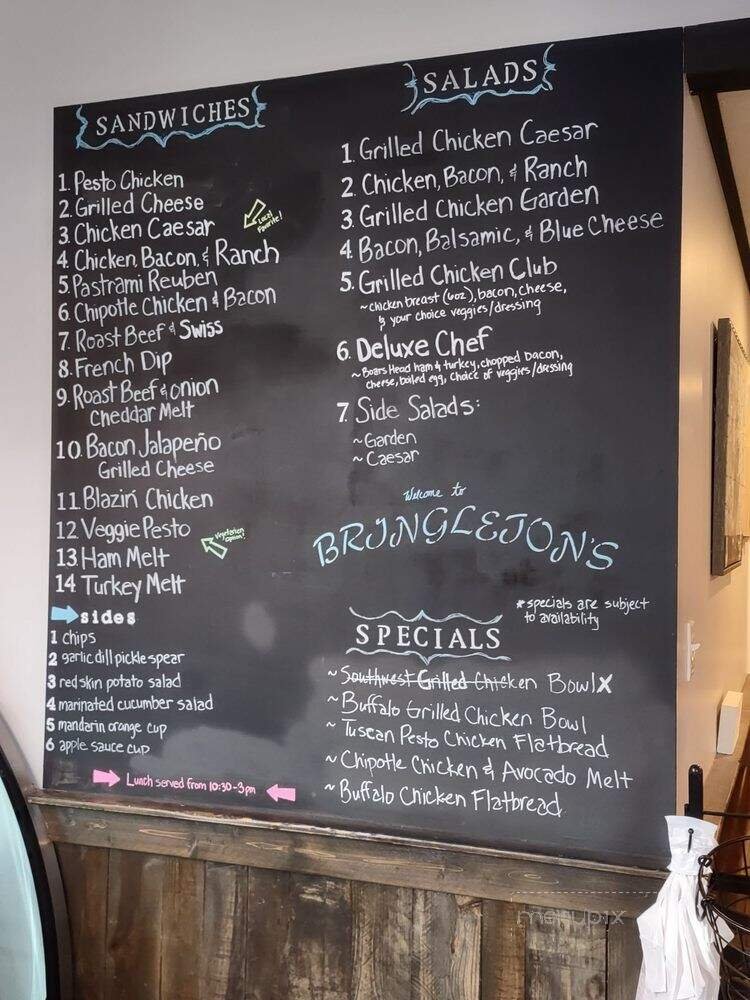 SANDWICHES
1. Pesto Chicken
2. Grilled Cheese
3. Chicken Caesar
Local Favorite!
4. Chicken, Bacon, & Ranch
5 Pastrami Reuben
6. Chipotle Chicken & Bacon
7. Roast Beef & Swiss
8. French Dip
9. Roast Beef & onion
Cheddar Melt
10. Bacon Jalapeño
Grilled Cheese
11. Blazin Chicken
12 Veggie Pesto
Vegetarian option!
13 Ham Melt
14 Turkey Melt
sides
1 chips
2 garlic dill pickle spear
3 redskin potato salad
4 marinated cucumber salad
5 mandarin orange cup
6 apple sauce cup
Lunch served from 10:30-3pm
SALADS
1. Grilled Chicken Caesar
2. Chicken, Bacon, & Ranch
3. Grilled Chicken Garden
4. Bacon, Balsamic, & Blue Cheese
5. Grilled Chicken Club
~chicken breast (6oz), bacon, cheese,
& your choice veggies/dressing
6. Deluxe Chef
~Boars Head ham & turkey, chopped bacon,
cheese, boiled egg, choice of veggies/dressing
7. Side Salads:
~Garden
~Caesar
Welcome to
BRINGLETON'S
*specials are subject
to availability
SPECIALS
~Southwest Grilled Chicken Bowl X
~Buffalo Grilled Chicken Bowl
~Tuscan Pesto Chicken Flatbread
~Chipotle Chicken & Avocado Melt
~Buffalo Chicken Flatbread
menupix